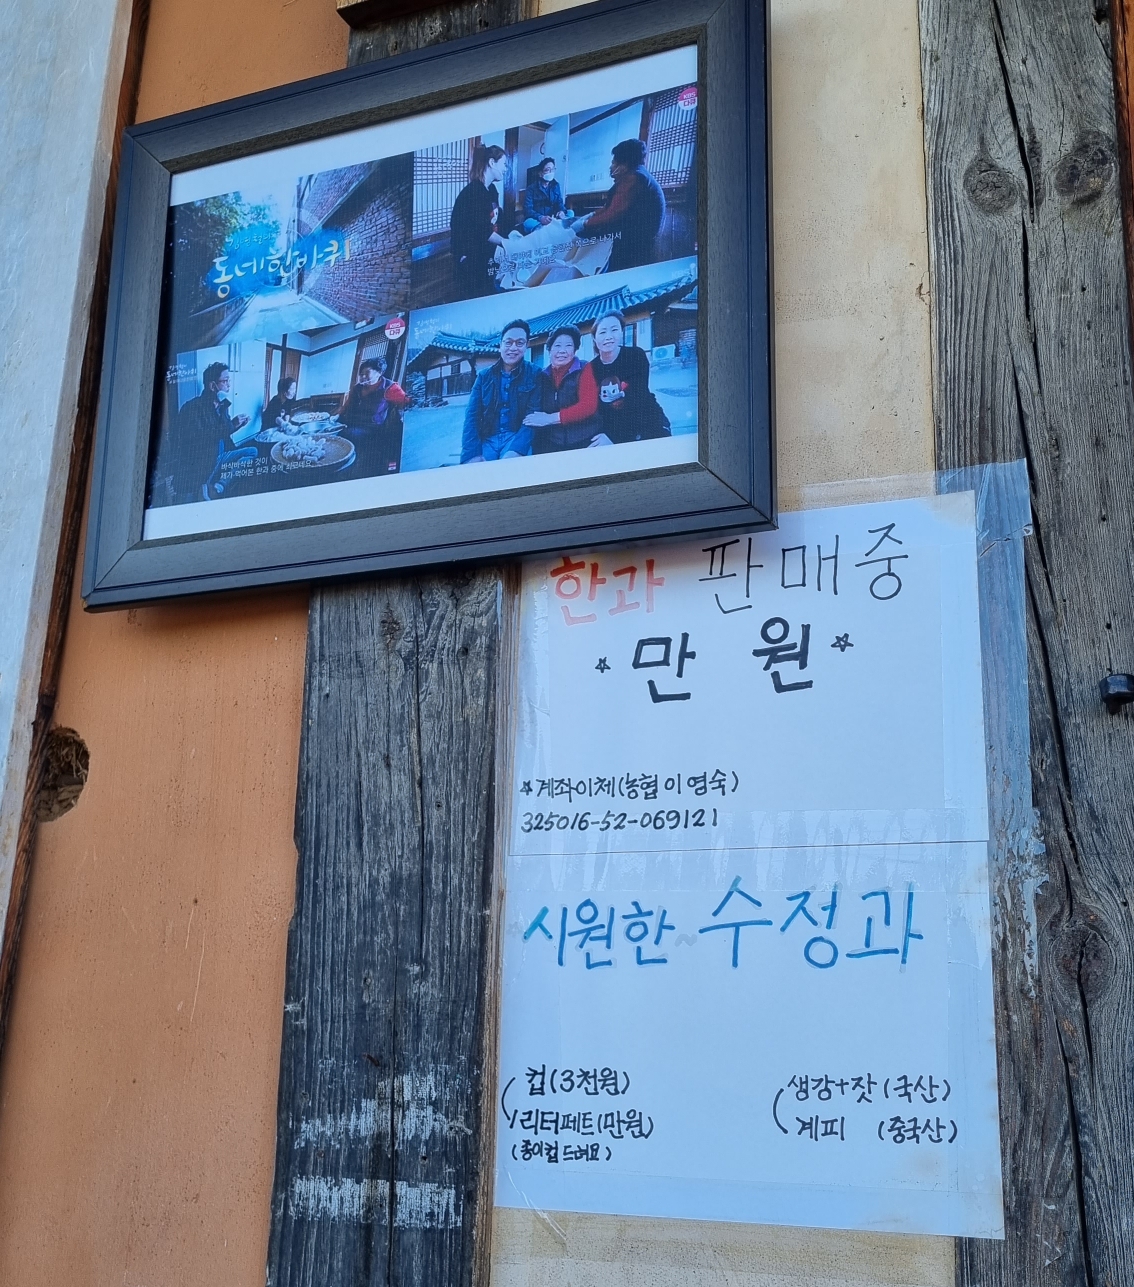 동네한바퀴
KBS
다큐
KBS
다큐
동네한바퀴
바삭바삭한 것이
제가 먹어본 한과 중에 최고네요
한과 판매중
*만 원*
*계좌이체(농협 이영숙)
325016-52-069121
시원한~수정과
컵(3천원)
1리터페트(만원)
(종이컵 드려요)
생강+잣(국산)
계피 (중국산)